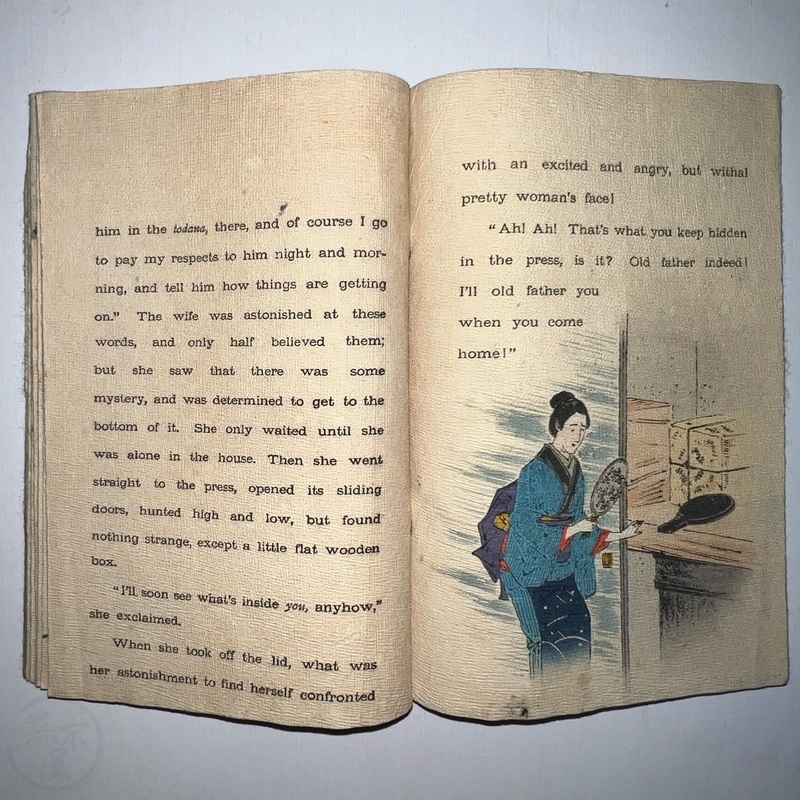 him in the todana, there, and of course I go
to pay my respects to him night and mor-
ning, and tell him how things are getting
on." The wife was astonished at these
words, and only half believed them;
but she saw that there was some
mystery, and was determined to get to the
bottom of it. She only waited until she
was alone in the house. Then she went
straight to the press, opened its sliding
doors, hunted high and low, but found
nothing strange, except a little flat wooden
box.
"I'll soon see what's inside you, anyhow,"
she exclaimed.
When she took off the lid, what was
her astonishment to find herself confronted
with an excited and angry, but withal
pretty woman's face!
"Ah! Ah! That's what you keep hidden
in the press, is it? Old father indeed!
I'll old father you
when you come
home!"